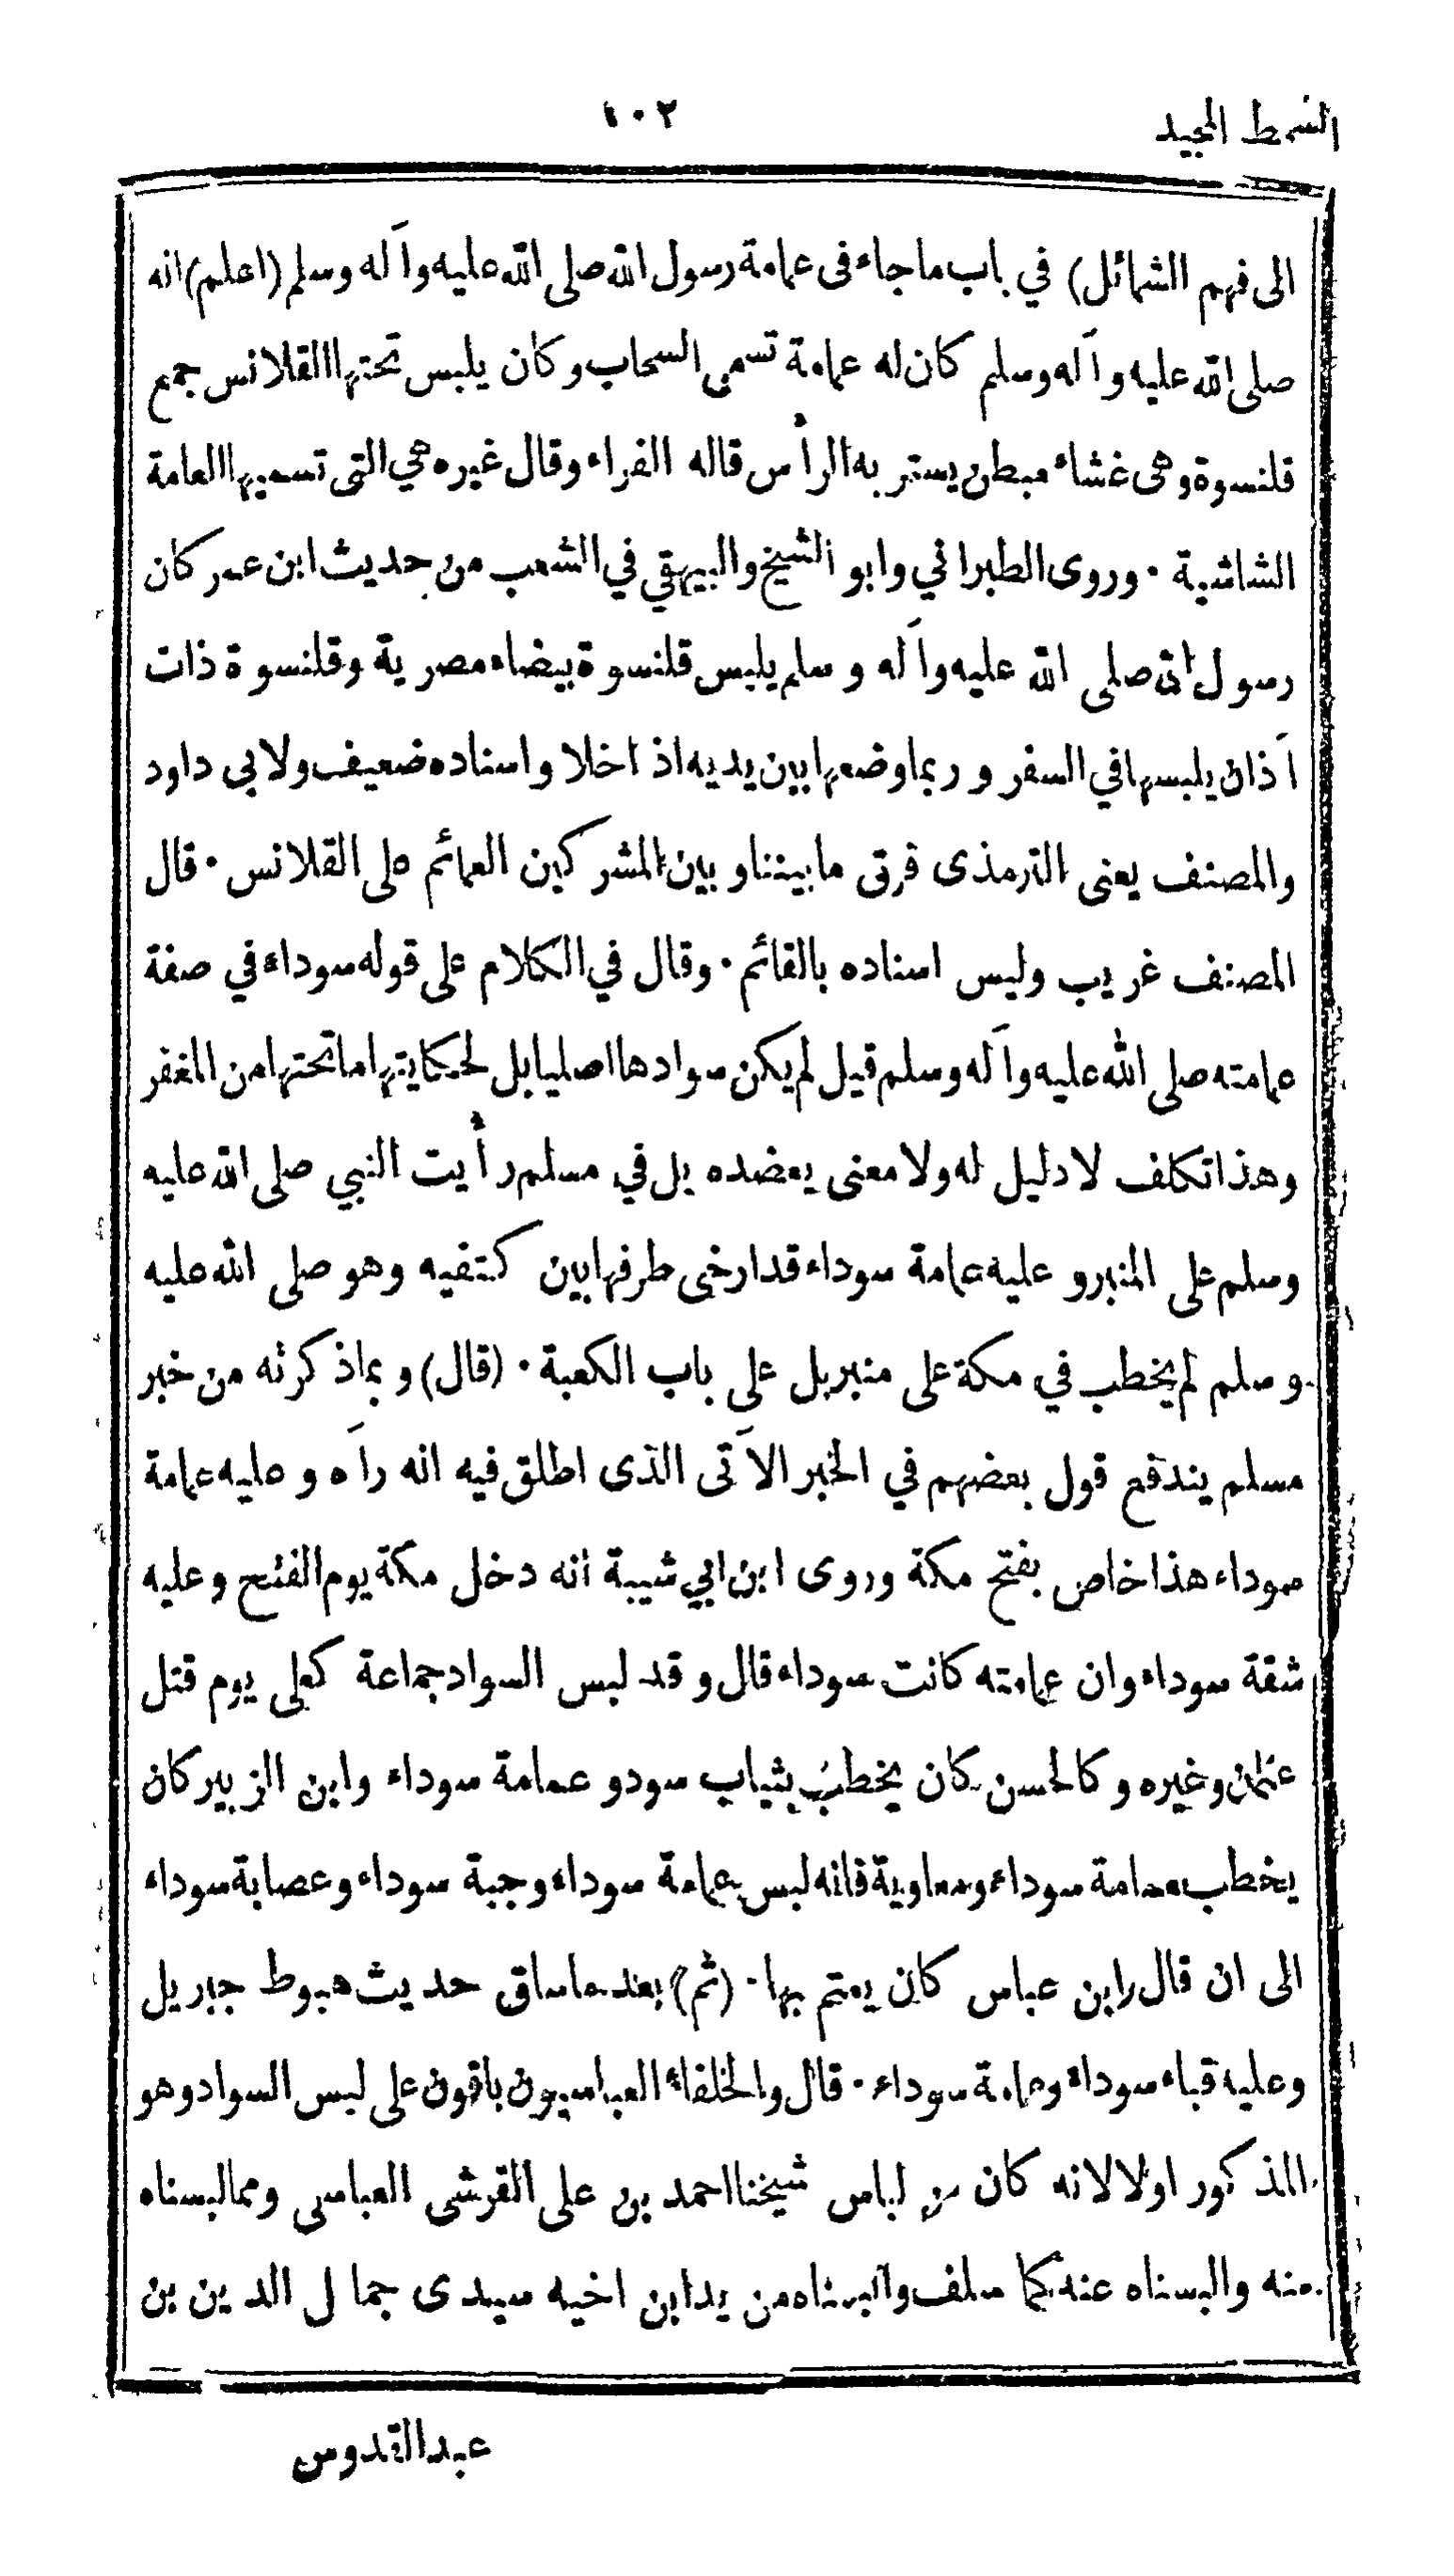 السمط المجيد
١٠٢
الى فهم الشمائل) في باب ما جاء فى عمامة رسول الله صلى الله عليه وآله وسلم (اعلم) انه
صلى الله عليه وآله وسلم كان له عمامة تسمى السحاب وكان يلبس تحتها القلانس جمع
قلنسوة وهى غشاء مبطن يستر به الرأس قاله الفراء وقال غيره هي التى تسميها العامة
الشاشية ٠ وروى الطبراني وابو الشيخ والبيهقي في الشعب من حديث ابن عمر كان
رسول الله صلى الله عليه وآله وسلم يلبس قلنسوة بيضاء مصرية وقلنسوة ذات
آذان يلبسها في السفر وربما وضعها بين يديه اذا خلا واسناده ضعيف ولابى داود
والمصنف يعنى الترمذى فرق ما بيننا وبين المشركين العمائم على القلانس ٠ قال
المصنف غريب وليس اسناده بالقائم ٠ وقال في الكلام على قوله سوداء في صفة
عمامته صلى الله عليه وآله وسلم قيل لم يكن سوادها اصليا بل لحكايتها ما تحتها من المغفر
وهذا تكلف لا دليل له ولا معنى يعضده بل في مسلم رأيت النبي صلى الله عليه
وسلم على المنبر وعليه عمامة سوداء قد ارخى طرفها بين كتفيه وهو صلى الله عليه
وسلم لم يخطب في مكة على منبر بل على باب الكعبة ٠ (قال) وبما ذكرته من خبر
مسلم يندفع قول بعضهم في الخبر الآتى الذى اطلق فيه انه رآه وعليه عمامة
سوداء هذا خاص بفتح مكة وروى ابن ابي شيبة انه دخل مكة يوم الفتح وعليه
شقة سوداء وان عمامته كانت سوداء قال وقد لبس السواد جماعة كعلى يوم قتل
عثمان وغيره وكالحسن كان يخطب بثياب سود وعمامة سوداء وابن الزبير كان
يخطب بعمامة سوداء ومعاوية فانه لبس عمامة سوداء وجبة سوداء وعصابة سوداء
الى ان قال وابن عباس كان يعتم بها ٠ (ثم) بعد ما ساق حديث هبوط جبريل
وعليه قباء سوداء وعمامة سوداء ٠ قال والخلفاء العباسيون باقون على لبس السواد وهو
المذكور اولا لانه كان من لباس شيخنا احمد بن على القرشى العباسى ومما لبسناه
منه والبسناه عنه كما سلف والبسناه من يد ابن اخيه سيدى جمال الدين بن
عبد القدوس